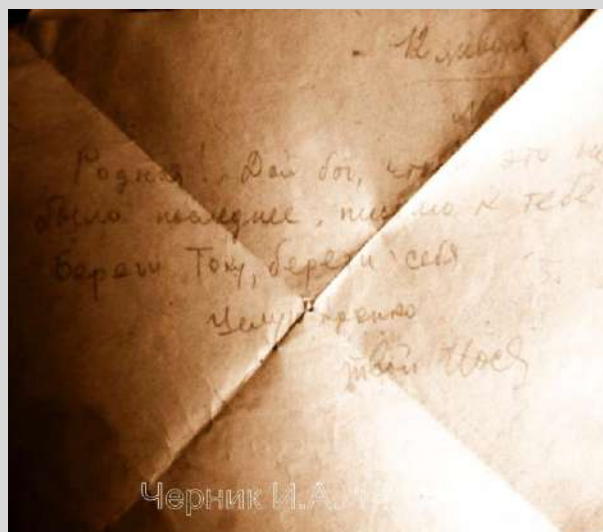 12 января
Родная! Дай бог, чтоб это не
было последнее, письмо к тебе
Береги Тоху, береги себя
Целую крепко
твой Йося
Черник И.А.